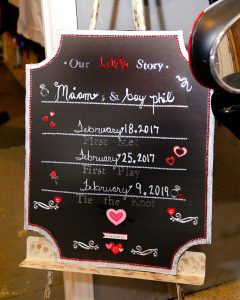 Our Love Story
& boy phil
February 18. 2017
First Met
February 25. 2017
First Play
February 9. 2019
Tie the Knot